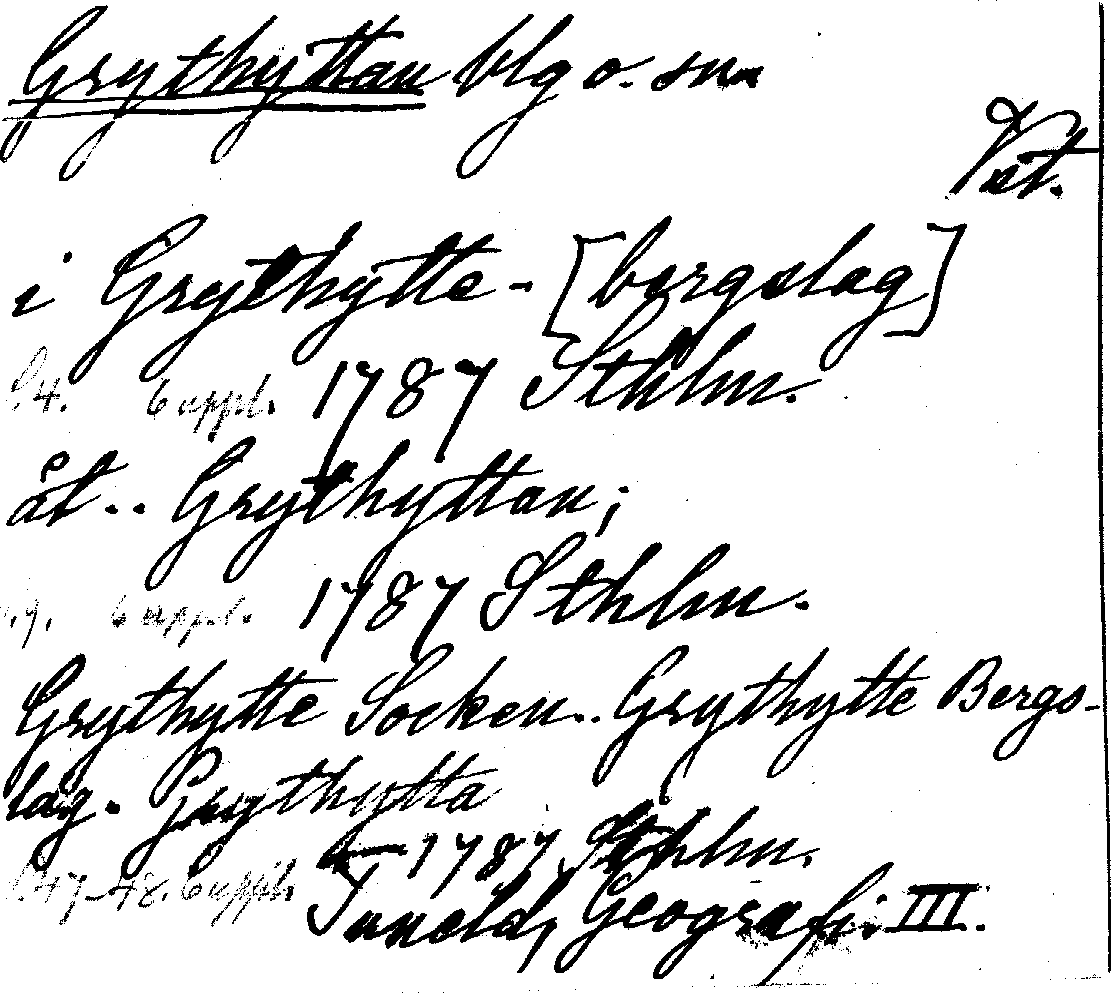 Grythyttan blg o. sn
Vst.
i Grythytte- [bergslag]
s. 4. 6 uppl. 1787 Sthlm.
åt .. Grythyttan;
6 uppl. 1787 Sthlm.
Grythytte Socken .. Grythytte Bergs-
lag. Grythytta
1787 Sthlm.
s. 47-48. 6 uppl.
Tuneld, Geografi. III.